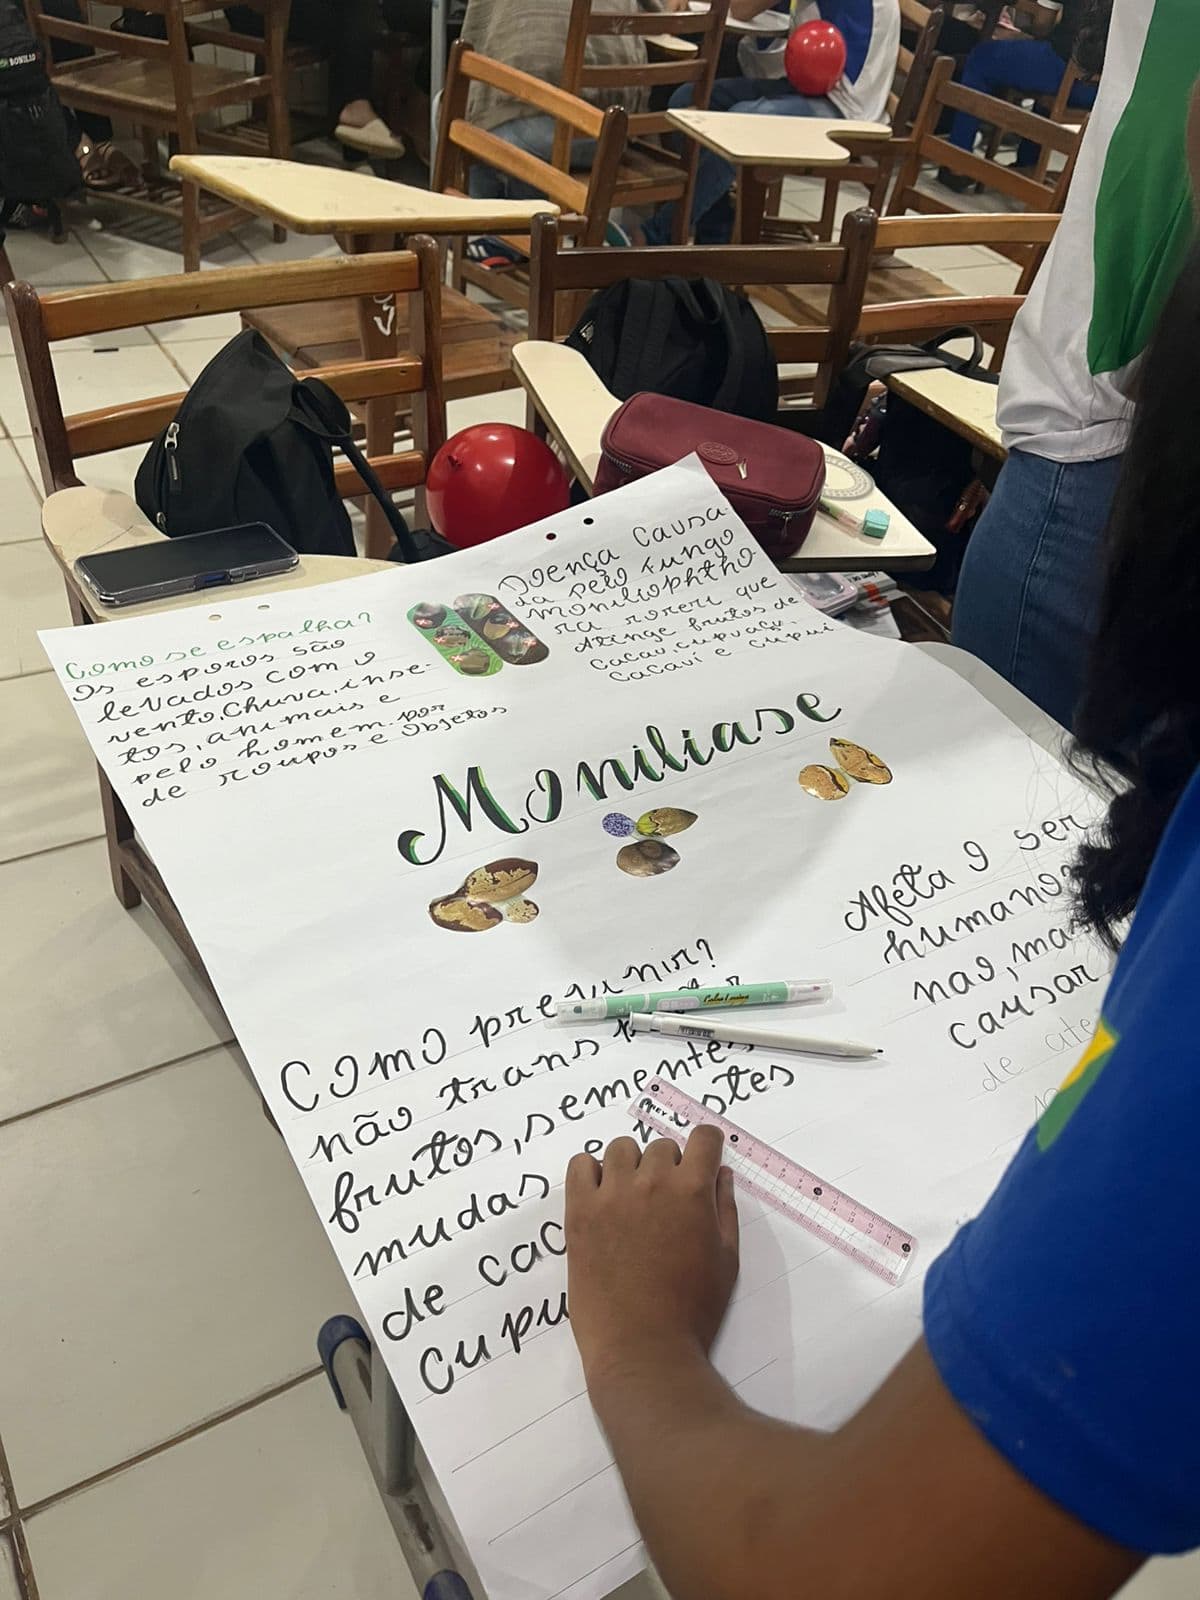 Como se espalha?
Os esporos são
levados com o
vento, chuva, inse-
tos, animais e
pelo homem, por
de roupos e objetos
Doença causa-
da pelo fungo
moniliophtho
ra roreri que
atinge frutos de
cacau, cupuaçu,
cacauí e cupuí
Moniliase
Como prevenir?
não trans
frutos, sementes
mudas e
de cac
cupu
Afeta o ser
humano?
nao, mas
causar
de ate